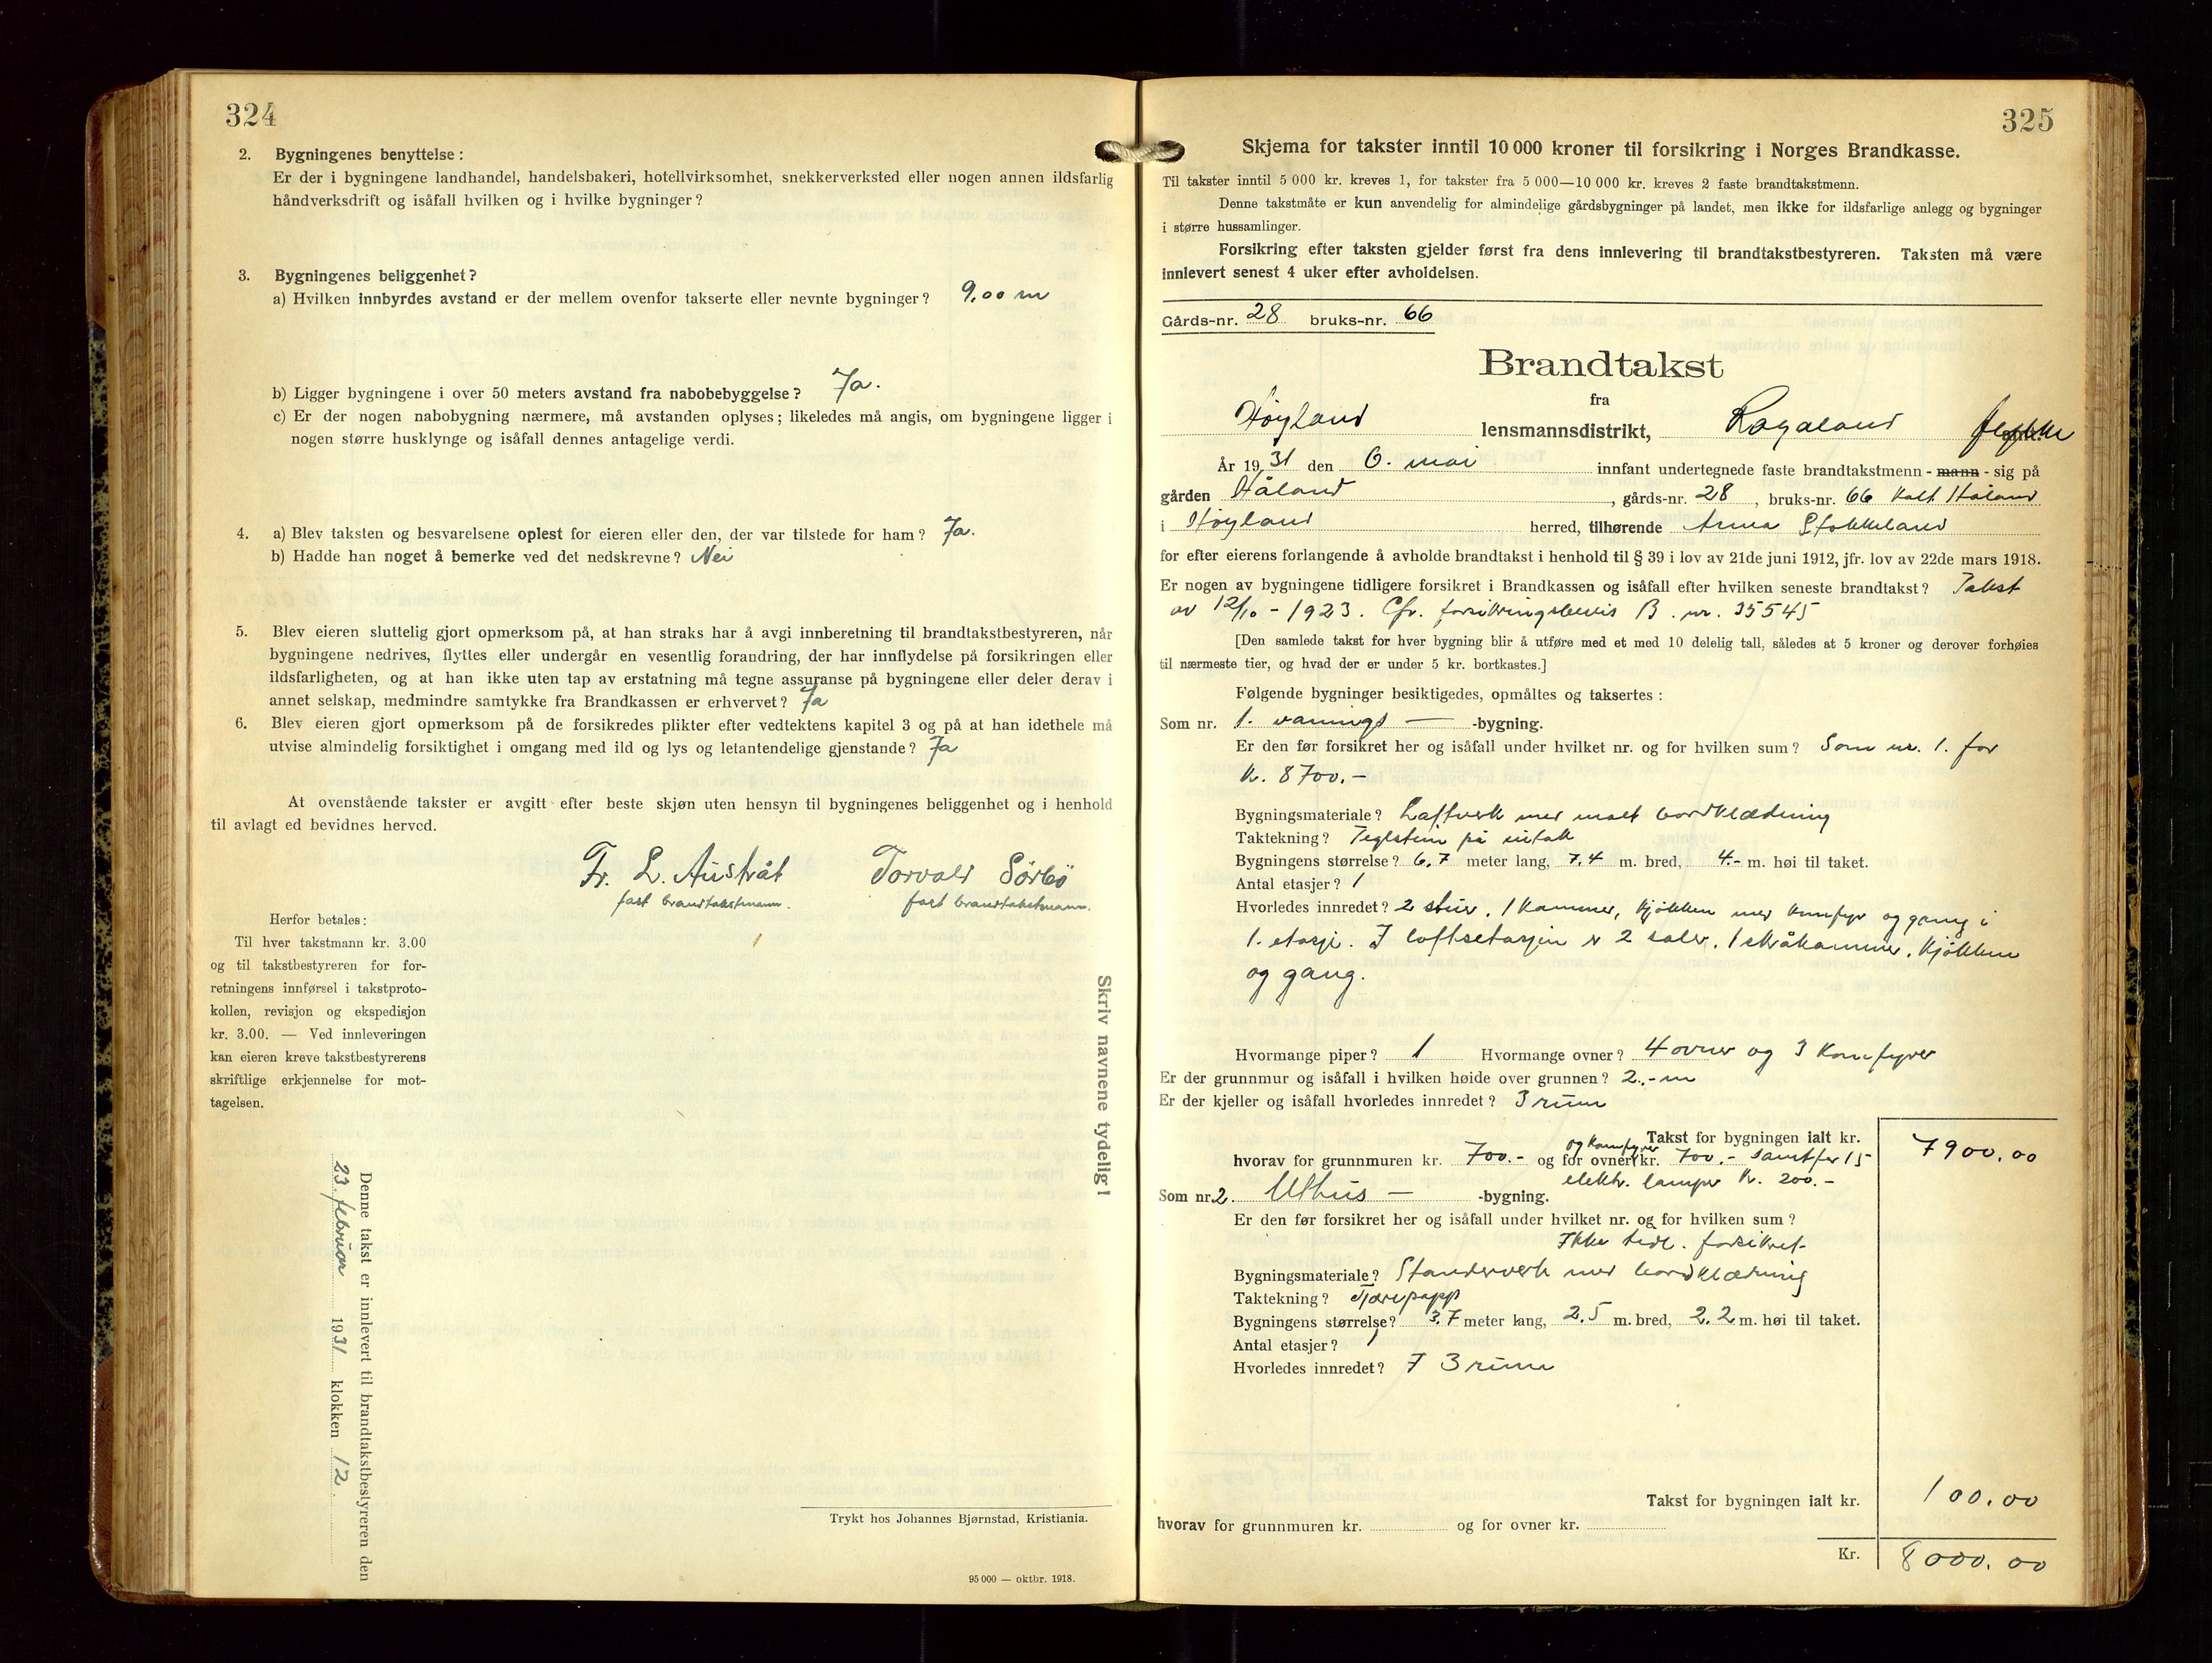 324
2. Bygningenes benyttelse :
Er der i bygningene landhandel, handelsbakeri, hotellvirksomhet, snekkerverksted eller nogen annen ildsfarlig
håndverksdrift og isåfall hvilken og i hvilke bygninger ?
3. Bygningenes beliggenhet ?
a) Hvilken innbyrdes avstand er der mellem ovenfor takserte eller nevnte bygninger ? 9,00 m
b) Ligger bygningene i over 50 meters avstand fra nabobebyggelse ? Ja.
c) Er der nogen nabobygning nærmere, må avstanden oplyses ; likeledes må angis, om bygningene ligger i
nogen større husklynge og isåfall dennes antagelige verdi.
4. a) Blev taksten og besvarelsene oplest for eieren eller den, der var tilstede for ham ? Ja.
b) Hadde han noget å bemerke ved det nedskrevne ? Nei
5. Blev eieren sluttelig gjort opmerksom på, at han straks har å avgi innberetning til brandtakstbestyreren, når
bygningene nedrives, flyttes eller undergår en vesentlig forandring, der har innflydelse på forsikringen eller
ildsfarligheten, og at han ikke uten tap av erstatning må tegne assuranse på bygningene eller deler derav i
annet selskap, medmindre samtykke fra Brandkassen er erhvervet ? Ja
6. Blev eieren gjort opmerksom på de forsikredes plikter efter vedtektens kapitel 3 og på at han idethele må
utvise almindelig forsiktighet i omgang med ild og lys og letantendelige gjenstande ? Ja
At ovenstående takster er avgitt efter beste skjøn uten hensyn til bygningenes beliggenhet og i henhold
til avlagt ed bevidnes herved.
Fr. L. Austråt Torvald Sörbö
fast brandtakstmann. fast brandtakstmann.
Herfor betales :
Til hver takstmann kr. 3.00
og til takstbestyreren for for-
retningens innførsel i takstproto-
kollen, revisjon og ekspedisjon
kr. 3.00. — Ved innleveringen
kan eieren kreve takstbestyrerens
skriftlige erkjennelse for mot-
tagelsen.
Denne takst er innlevert til brandtakstbestyreren den
23. februar 1931 klokken 12
Skriv navnene tydelig !
Trykt hos Johannes Bjørnstad, Kristiania.
95 000 — oktbr. 1918.
325
Skjema for takster inntil 10 000 kroner til forsikring i Norges Brandkasse.
Til takster inntil 5 000 kr. kreves 1, for takster fra 5 000—10 000 kr. kreves 2 faste brandtakstmenn.
Denne takstmåte er kun anvendelig for almindelige gårdsbygninger på landet, men ikke for ildsfarlige anlegg og bygninger
i større hussamlinger.
Forsikring efter taksten gjelder først fra dens innlevering til brandtakstbestyreren. Taksten må være
innlevert senest 4 uker efter avholdelsen.
Gårds-nr. 28 bruks-nr. 66
Brandtakst
fra
Høyland lensmannsdistrikt, Rogaland fylke
År 1931 den 6. mai innfant undertegnede faste brandtakstmenn - mann - sig på
gården Håland, gårds-nr. 28, bruks-nr. 66 kalt Håland
i Høyland herred, tilhørende Anna Stokkeland
for efter eierens forlangende å avholde brandtakst i henhold til § 39 i lov av 21de juni 1912, jfr. lov av 22de mars 1918.
Er nogen av bygningene tidligere forsikret i Brandkassen og isåfall efter hvilken seneste brandtakst ? Takst
av 12/10 - 1923. Cfr. forsikringsbevis B. nr. 35545
[Den samlede takst for hver bygning blir å utføre med et med 10 delelig tall, således at 5 kroner og derover forhøies
til nærmeste tier, og hvad der er under 5 kr. bortkastes.]
Følgende bygninger besiktigedes, opmåltes og taksertes :
Som nr. 1. vånings — -bygning.
Er den før forsikret her og isåfall under hvilket nr. og for hvilken sum ? Som nr. 1. for
kr. 8700.-
Bygningsmateriale ? Laftverk med malt bordklædning
Taktekning ? Teglstein på sutak
Bygningens størrelse ? 6,7 meter lang, 7,4 m. bred, 4.- m. høi til taket.
Antal etasjer ? 1
Hvorledes innredet ? 2 stuer, 1 kammer, kjøkken med komfyr og gang i
1. etasje. I loftsetasjen er 2 saler, 1 skråkammer, kjøkken
og gang.
Hvormange piper ? 1 Hvormange ovner ? 4 ovner og 3 komfyrer
Er der grunnmur og isåfall i hvilken høide over grunnen ? 2.- m
Er der kjeller og isåfall hvorledes innredet ? 3 rum
Takst for bygningen ialt kr. 7900.00
hvorav for grunnmuren kr. 700.- og for ovner og komfyrer kr. 700.- samt for 15
elektr. lamper kr. 200.-
Som nr. 2. Uthus — -bygning.
Er den før forsikret her og isåfall under hvilket nr. og for hvilken sum ?
Ikke tidl. forsikret
Bygningsmateriale ? Standerverk med bordklædning
Taktekning ? Tjærepapp
Bygningens størrelse ? 3,7 meter lang, 2.5 m. bred, 2.2 m. høi til taket.
Antal etasjer ? 1
Hvorledes innredet ? I 3 rum
Takst for bygningen ialt kr. 100.00
hvorav for grunnmuren kr. og for ovner kr.
Kr. 8000.00